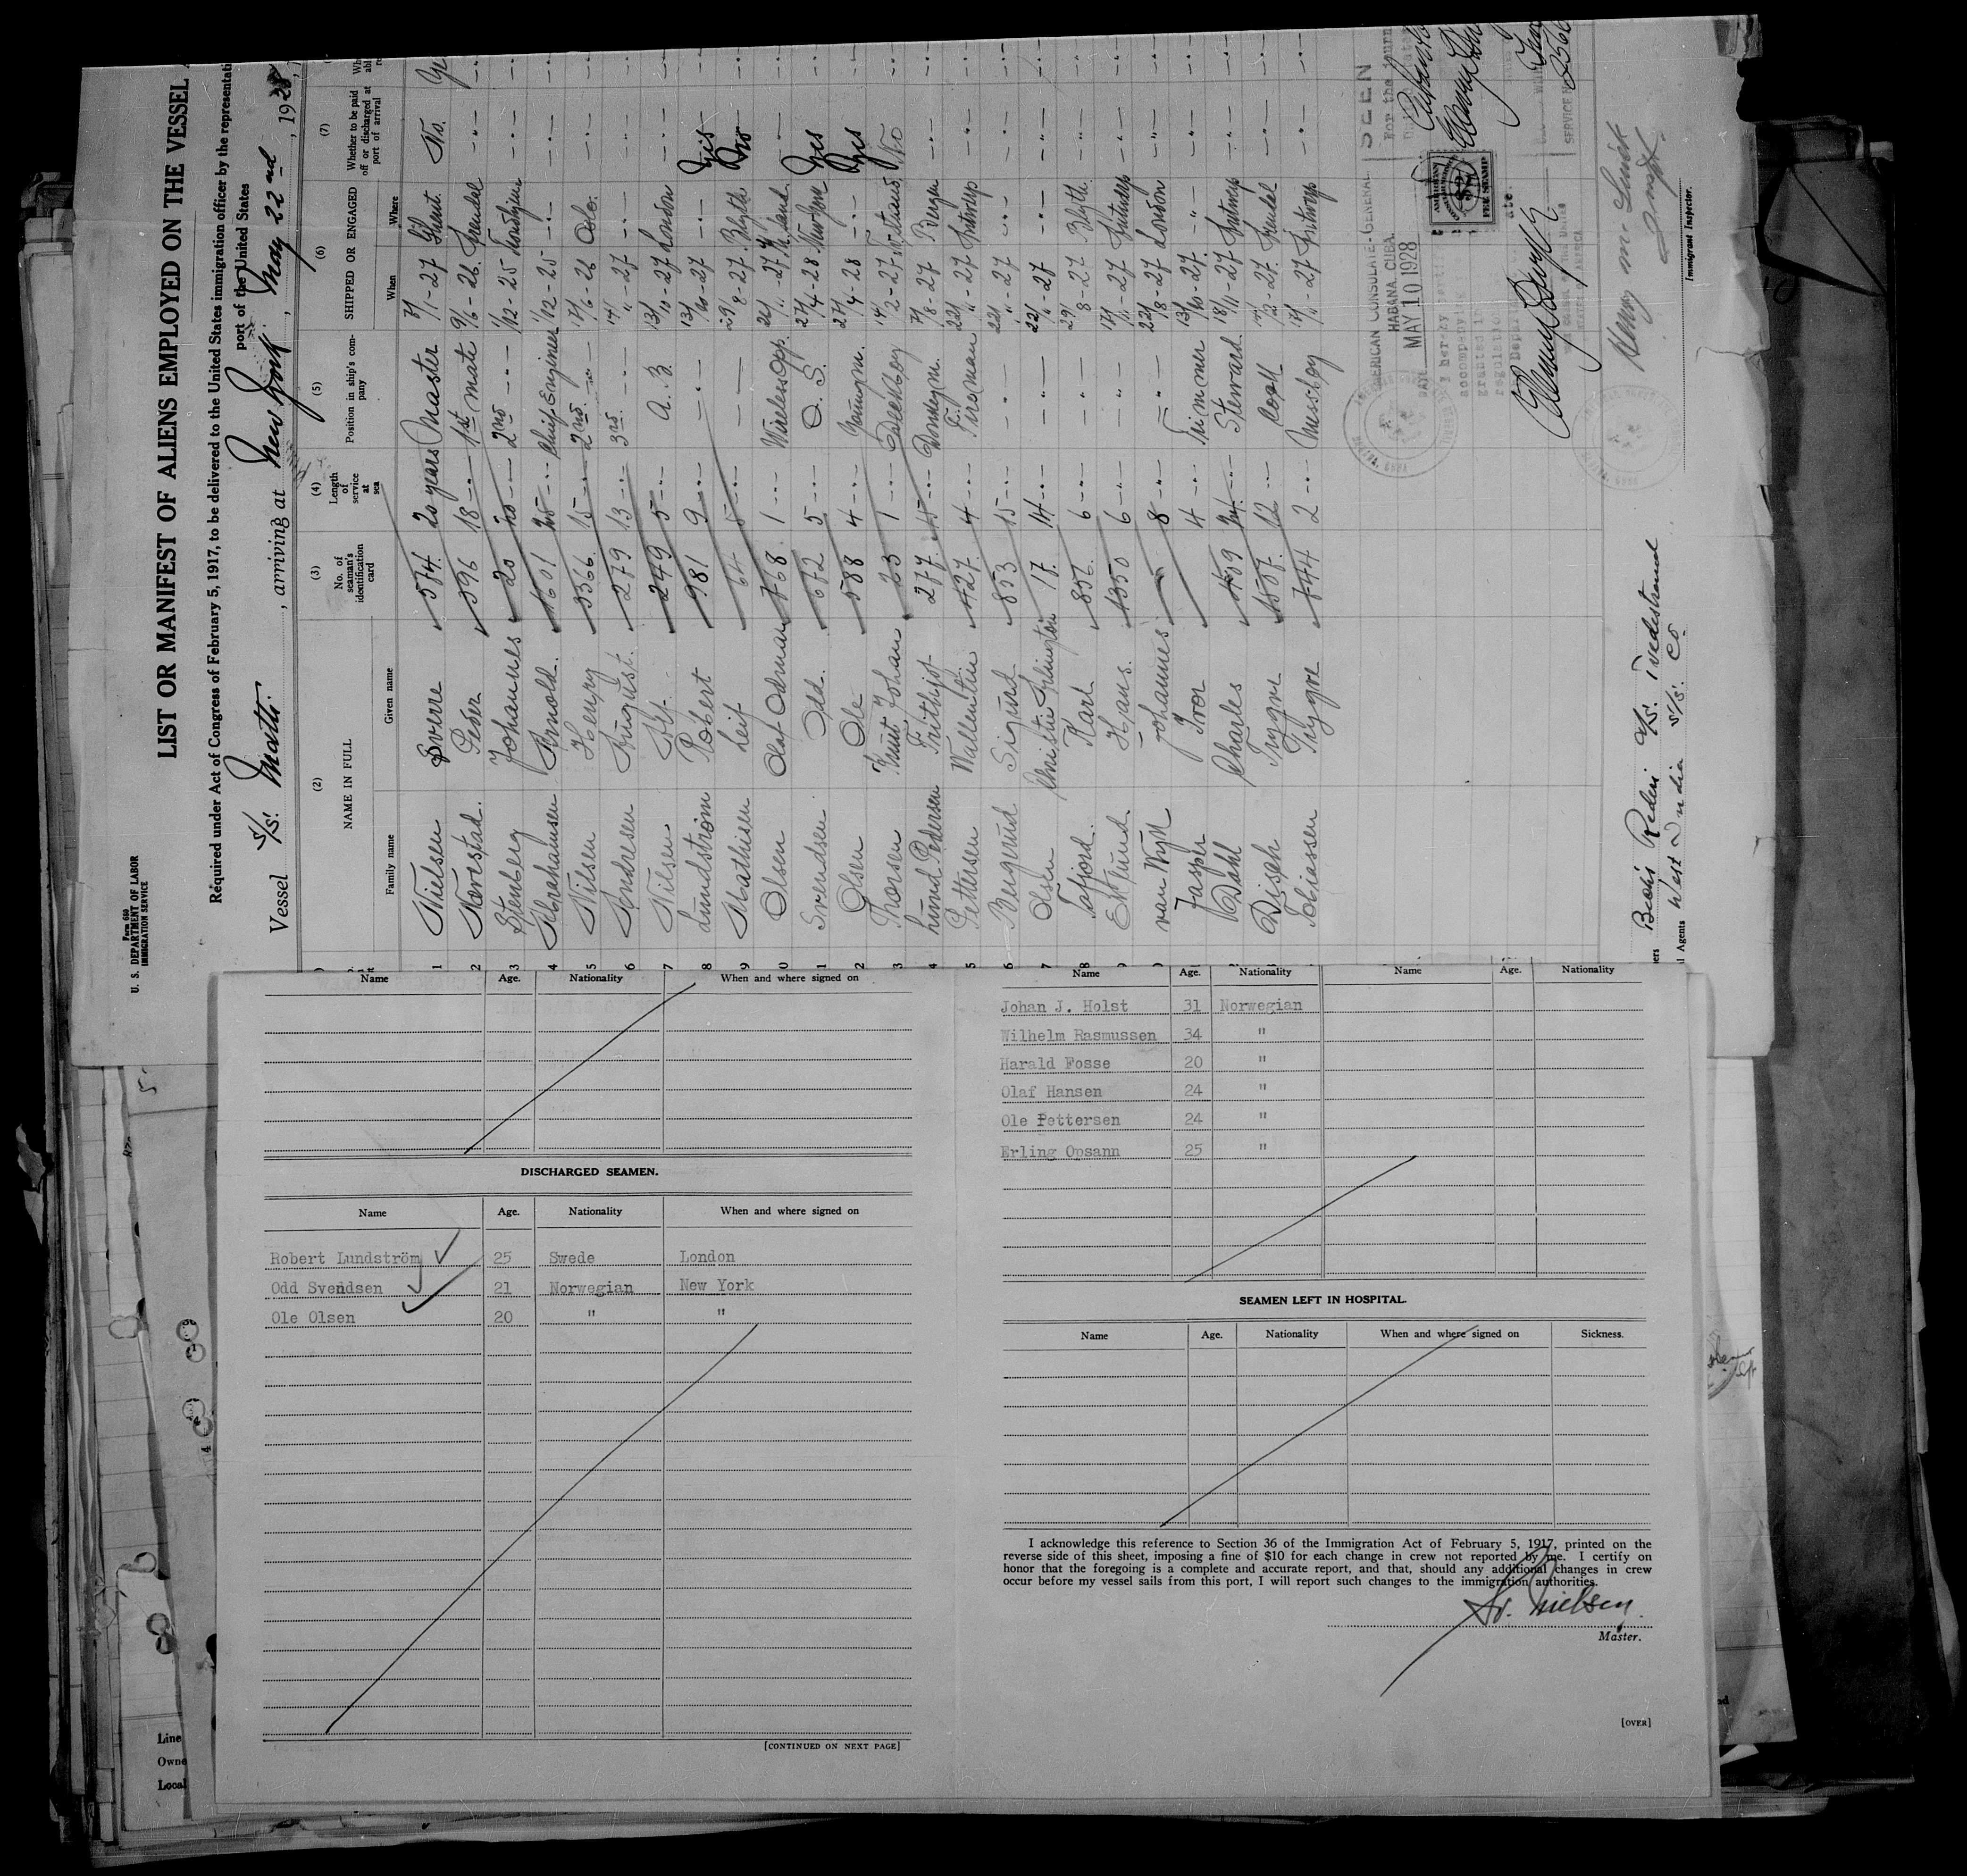 Form 680
U. S. DEPARTMENT OF LABOR
IMMIGRATION SERVICE
LIST OR MANIFEST OF ALIENS EMPLOYED ON THE VESSEL
Required under Act of Congress of February 5, 1917, to be delivered to the United States immigration officer by the representati
port of the United States
Vessel S/S. Matti. , arriving at New York , May 22nd , 1928
(2) (3) (4) (5) (6) (7)
NAME IN FULL No. of seaman's identification card Length of service at sea Position in ship's company SHIPPED OR ENGAGED Whether to be paid off or discharged at port of arrival
Family name Given name When Where
1 Nielsen Sverre 574. 20 years Master 7/1-27 Ghent. No.
2 Narestad. Peder 396 18 -"- 1st mate 9/6-26. Arendal -"-
3 Stenberg Johannes 20 -"- 2nd -"- 1/12-25 -"-
4 Abrahamsen Arnold. 1601 25 -"- Chief Engineer 1/12-25 -"- -"-
5 Nilsen Henry 3366. 15 -"- 2nd. -"- 17/6-26 Oslo. -"-
6 Andresen August. 279 13 -"- 3rd. -"- -"- -"-
7 Nilsen 249 5 -"- A. B. 13/10-27 London -"-
8 Lundström Robert 981 9 -"- -"- 13/10-27 -"- Yes
9 Mathisen Leif 64 5 -"- -"- 29/8-27. Blyth No
0 Olsen Olaf Odmar 768 1 -"- Wireless opp. -"-
1 Svendsen Odd. 672 5 -"- O. S. 27/4-28 New York Yes
2 Olsen Ole 588 4 -"- Youngm. 27/4-28 -"- Yes
3 Thorsen Knut Johan 23 1 -"- Deckboy No
4 Lund Pedersen Frithjof 277. 15 -"- Donkeym. 7/8-27 Bergen -"-
5 Pettersen Wallentin 427. 4 -"- Fireman 22/11-27 Antwerp -"-
6 Bergerud Sigurd 853 15 -"- -"- 22/11-27 -"- -"-
7 Olsen 17. 14 -"- -"- 22/11-27 -"- -"-
8 Tafjord. Karl 856. 6 -"- -"- 29/8-27 Blyth. -"-
9 Enlund. Hans. 1350 6 -"- -"- Antwerp -"-
0 van Wyk Johannes. 8 -"- -"- 22/8-27 London -"-
Jasper Ivor 4 -"- Trimmer 13/10-27. -"- -"-
2 Dahl Charles 1409 24 -"- Steward. 18/11-27 Antwerp -"-
Disah Trygve 1507. 12 -"- Cook Arendal -"-
Tobiassen Trygve 744 2 -"- Messboy Antwerp -"-
AMERICAN CONSULATE-GENERAL
HABANA, CUBA.
DATE MAY 10 1928
SEEN
For the journ
SERVICE N
Immigrant Inspector.
Tvedestrand
Agents West India S/S. Co.
Name Age. Nationality When and where signed on
DISCHARGED SEAMEN.
Name Age. Nationality When and where signed on
Robert Lundström 25 Swede London
Odd Svendsen 21 Norwegian New York
Ole Olsen 20 " "
[CONTINUED ON NEXT PAGE]
Name Age. Nationality Name Age. Nationality
Johan J. Holst 31 Norwegian
Wilhelm Rasmussen 34 "
Harald Fosse 20 "
Olaf Hansen 24 "
Ole Pettersen 24 "
Erling Opsann 25 "
SEAMEN LEFT IN HOSPITAL.
Name Age. Nationality When and where signed on Sickness.
I acknowledge this reference to Section 36 of the Immigration Act of February 5, 1917, printed on the
reverse side of this sheet, imposing a fine of $10 for each change in crew not reported by me. I certify on
honor that the foregoing is a complete and accurate report, and that, should any additional changes in crew
occur before my vessel sails from this port, I will report such changes to the immigration authorities.
Sv. Nielsen.
Master.
[OVER]
Line
Owne
Local